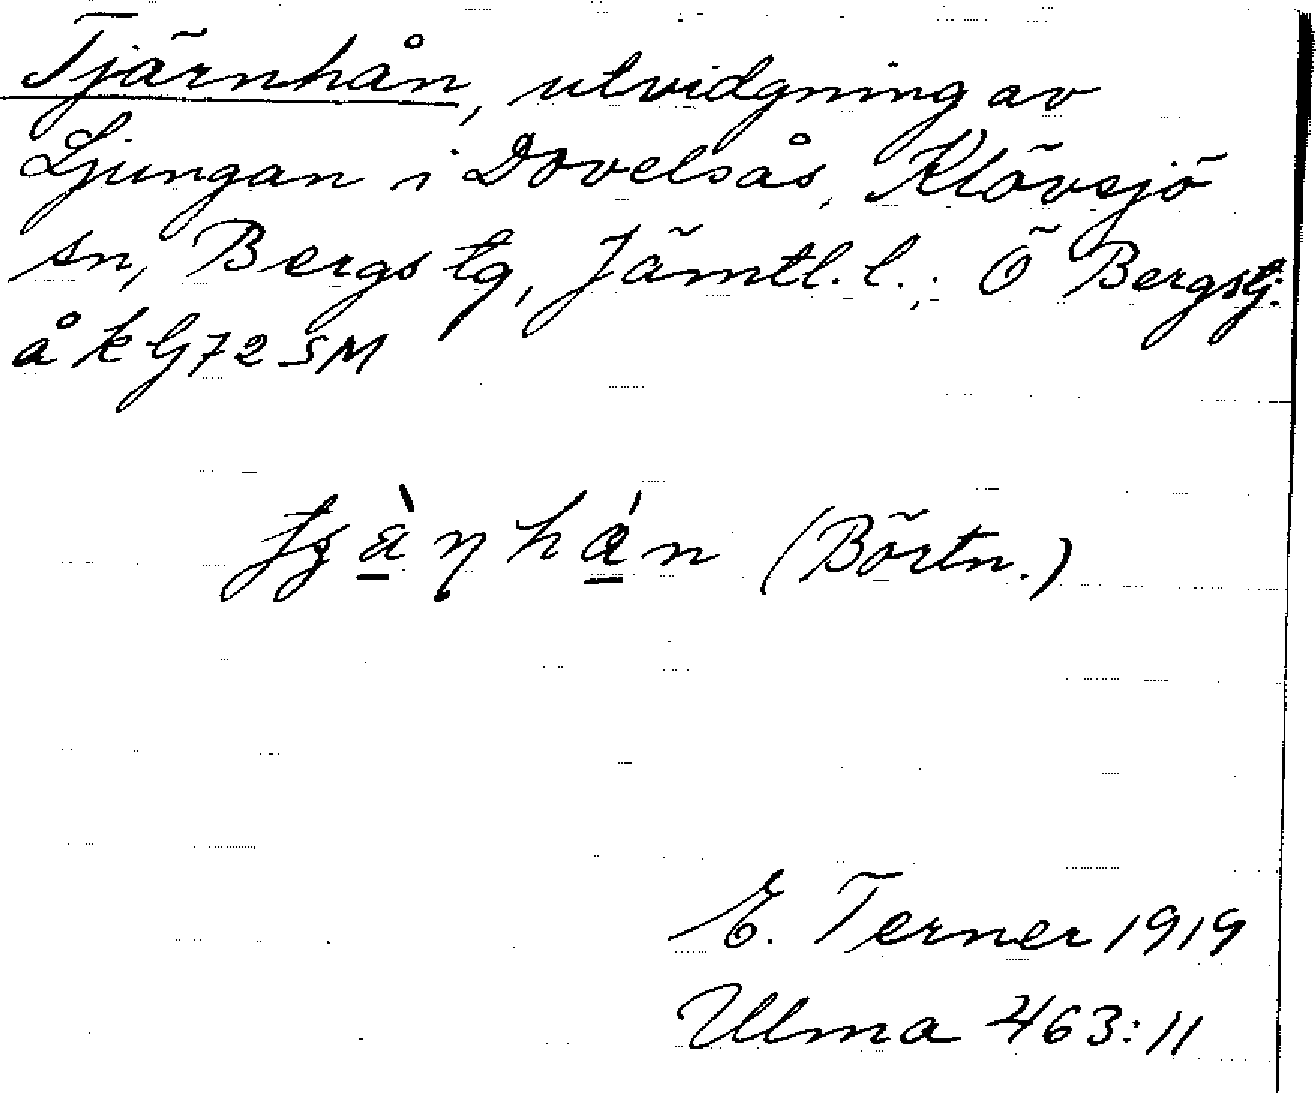 Tjärnhån, utvidgning av
Ljungan i Dovelsås, Klövsjö
sn, Bergs tg, Jämtl. l.; Ö Bergstj.
å k G72 SM
(Börtn.)
E. Terner 1919
Ulma 463:11